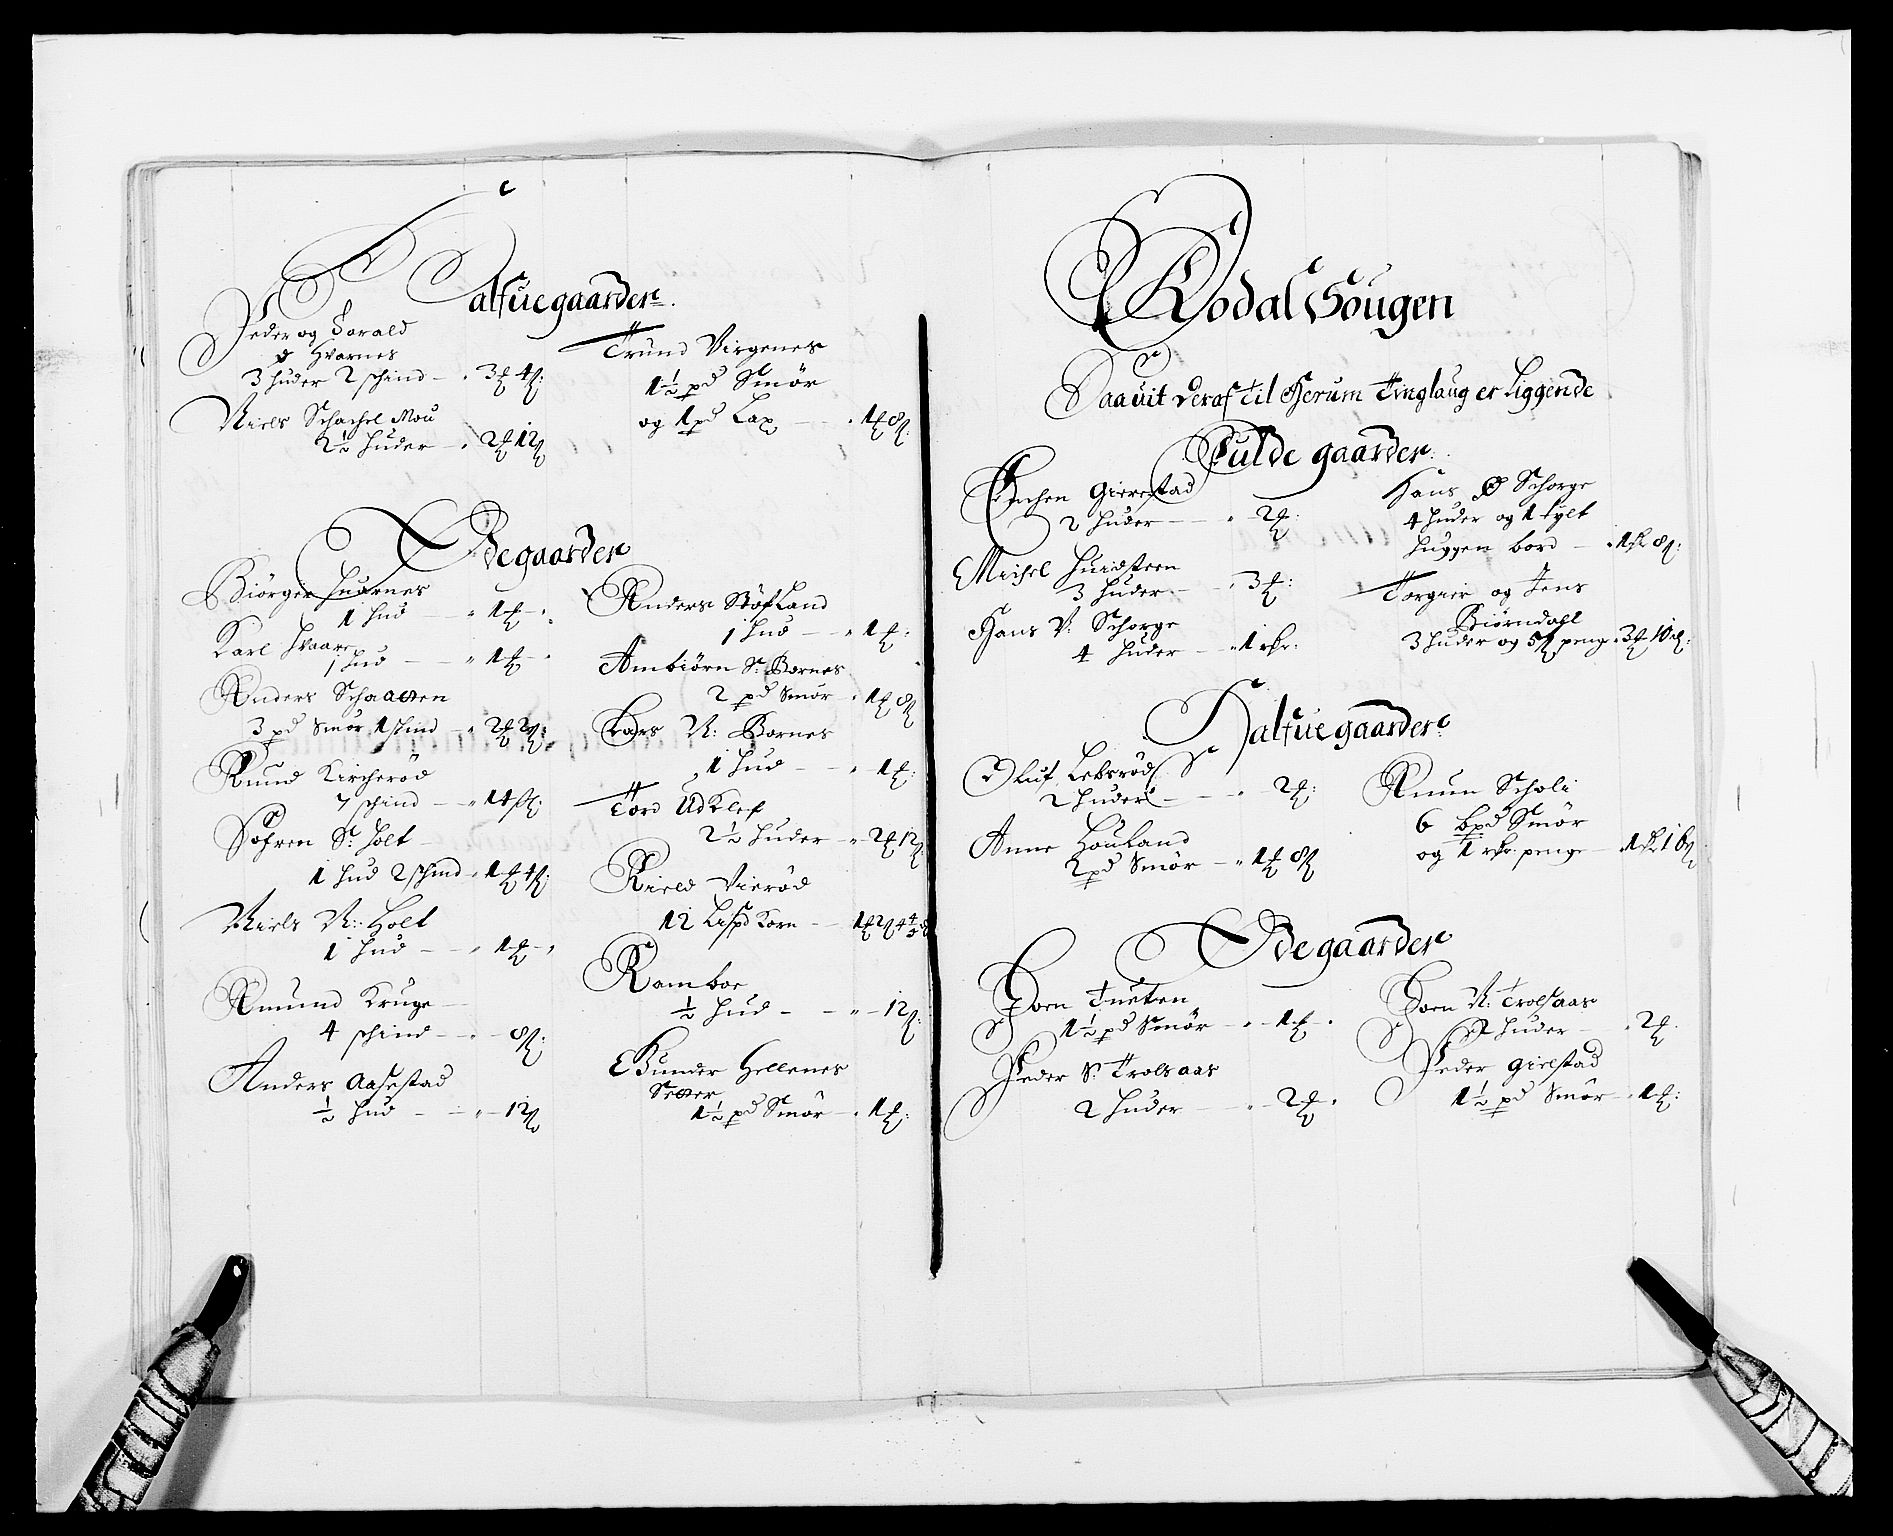 Halfuegaarder
Peder og Harald
Hvarnes
3 huder 2 schind 3 ℔ 4 ß
Niels Schachel Mou
2½ huder 2 ℔ 12 ß
Trund Virgenes
1½ pd Smör
og 1 pd Lax 1 ℔ 8 ß
Ødegaarder
Biörger Huarnes
1 hud 1 ℔
Karl
1 hud 1 ℔
Anders Schaaeren
3 pd Smör 1 schind 2 ℔ 2 ß
Knud Kircherød
7 schind 14 ß
Sofren S: Holt
1 hud 2 schind 1 ℔ 4 ß
Niels N: Holt
1 hud 1 ℔
Amund Kruge
4 schind 8 ß
Anders Aasestad
½ hud 12 ß
Anders Stöfland
1 hud 1 ℔
Ambiörn S: Bornes
2 pd Smör 1 ℔ 8 ß
Lars N: Bornes
1 hud 1 ℔
Tord Udklef
2½ huder 2 ℔ 12 ß
Kield Vierød
12 Lispd Korn 1 ℔ 2 ß 4 4/5 d
Ramboe
½ hud 12 ß
Gunder Hellenes
1½ pd Smör 1 ℔
Kodal Sougen
Saauit deraf til Jerum Tinglaug er Liggende
Fulde gaarder
Gierestad
2 huder 2 ℔
Michel Huidsteen
3 huder 3 ℔
Hans V: Schorge
4 huder 1 rdr
Hans Ø Schorge
4 huder og 1 tylt
huggen bord 1 rdr 8 ß
Torgier og Jens
Biörndall
3 huder og 5 ß penge 3 ℔ 10 ß
Halfuegaarder
Oluf Leksrød
2 huder 2 ℔
Anne Houland
2 pd Smör 1 ℔ 8 ß
Amun Scholi
6 bpd Smör
og 1 rdr penge 1 rdr 16 ß
Ødegaarder
Joen Tueten
1½ pd Smör 1 ℔
Peder S: Trolsaas
2 huder 2 ℔
Joen N: Trolsaas
2 huder 2 ℔
Peder Gielstad
1½ pd Smör 1 ℔